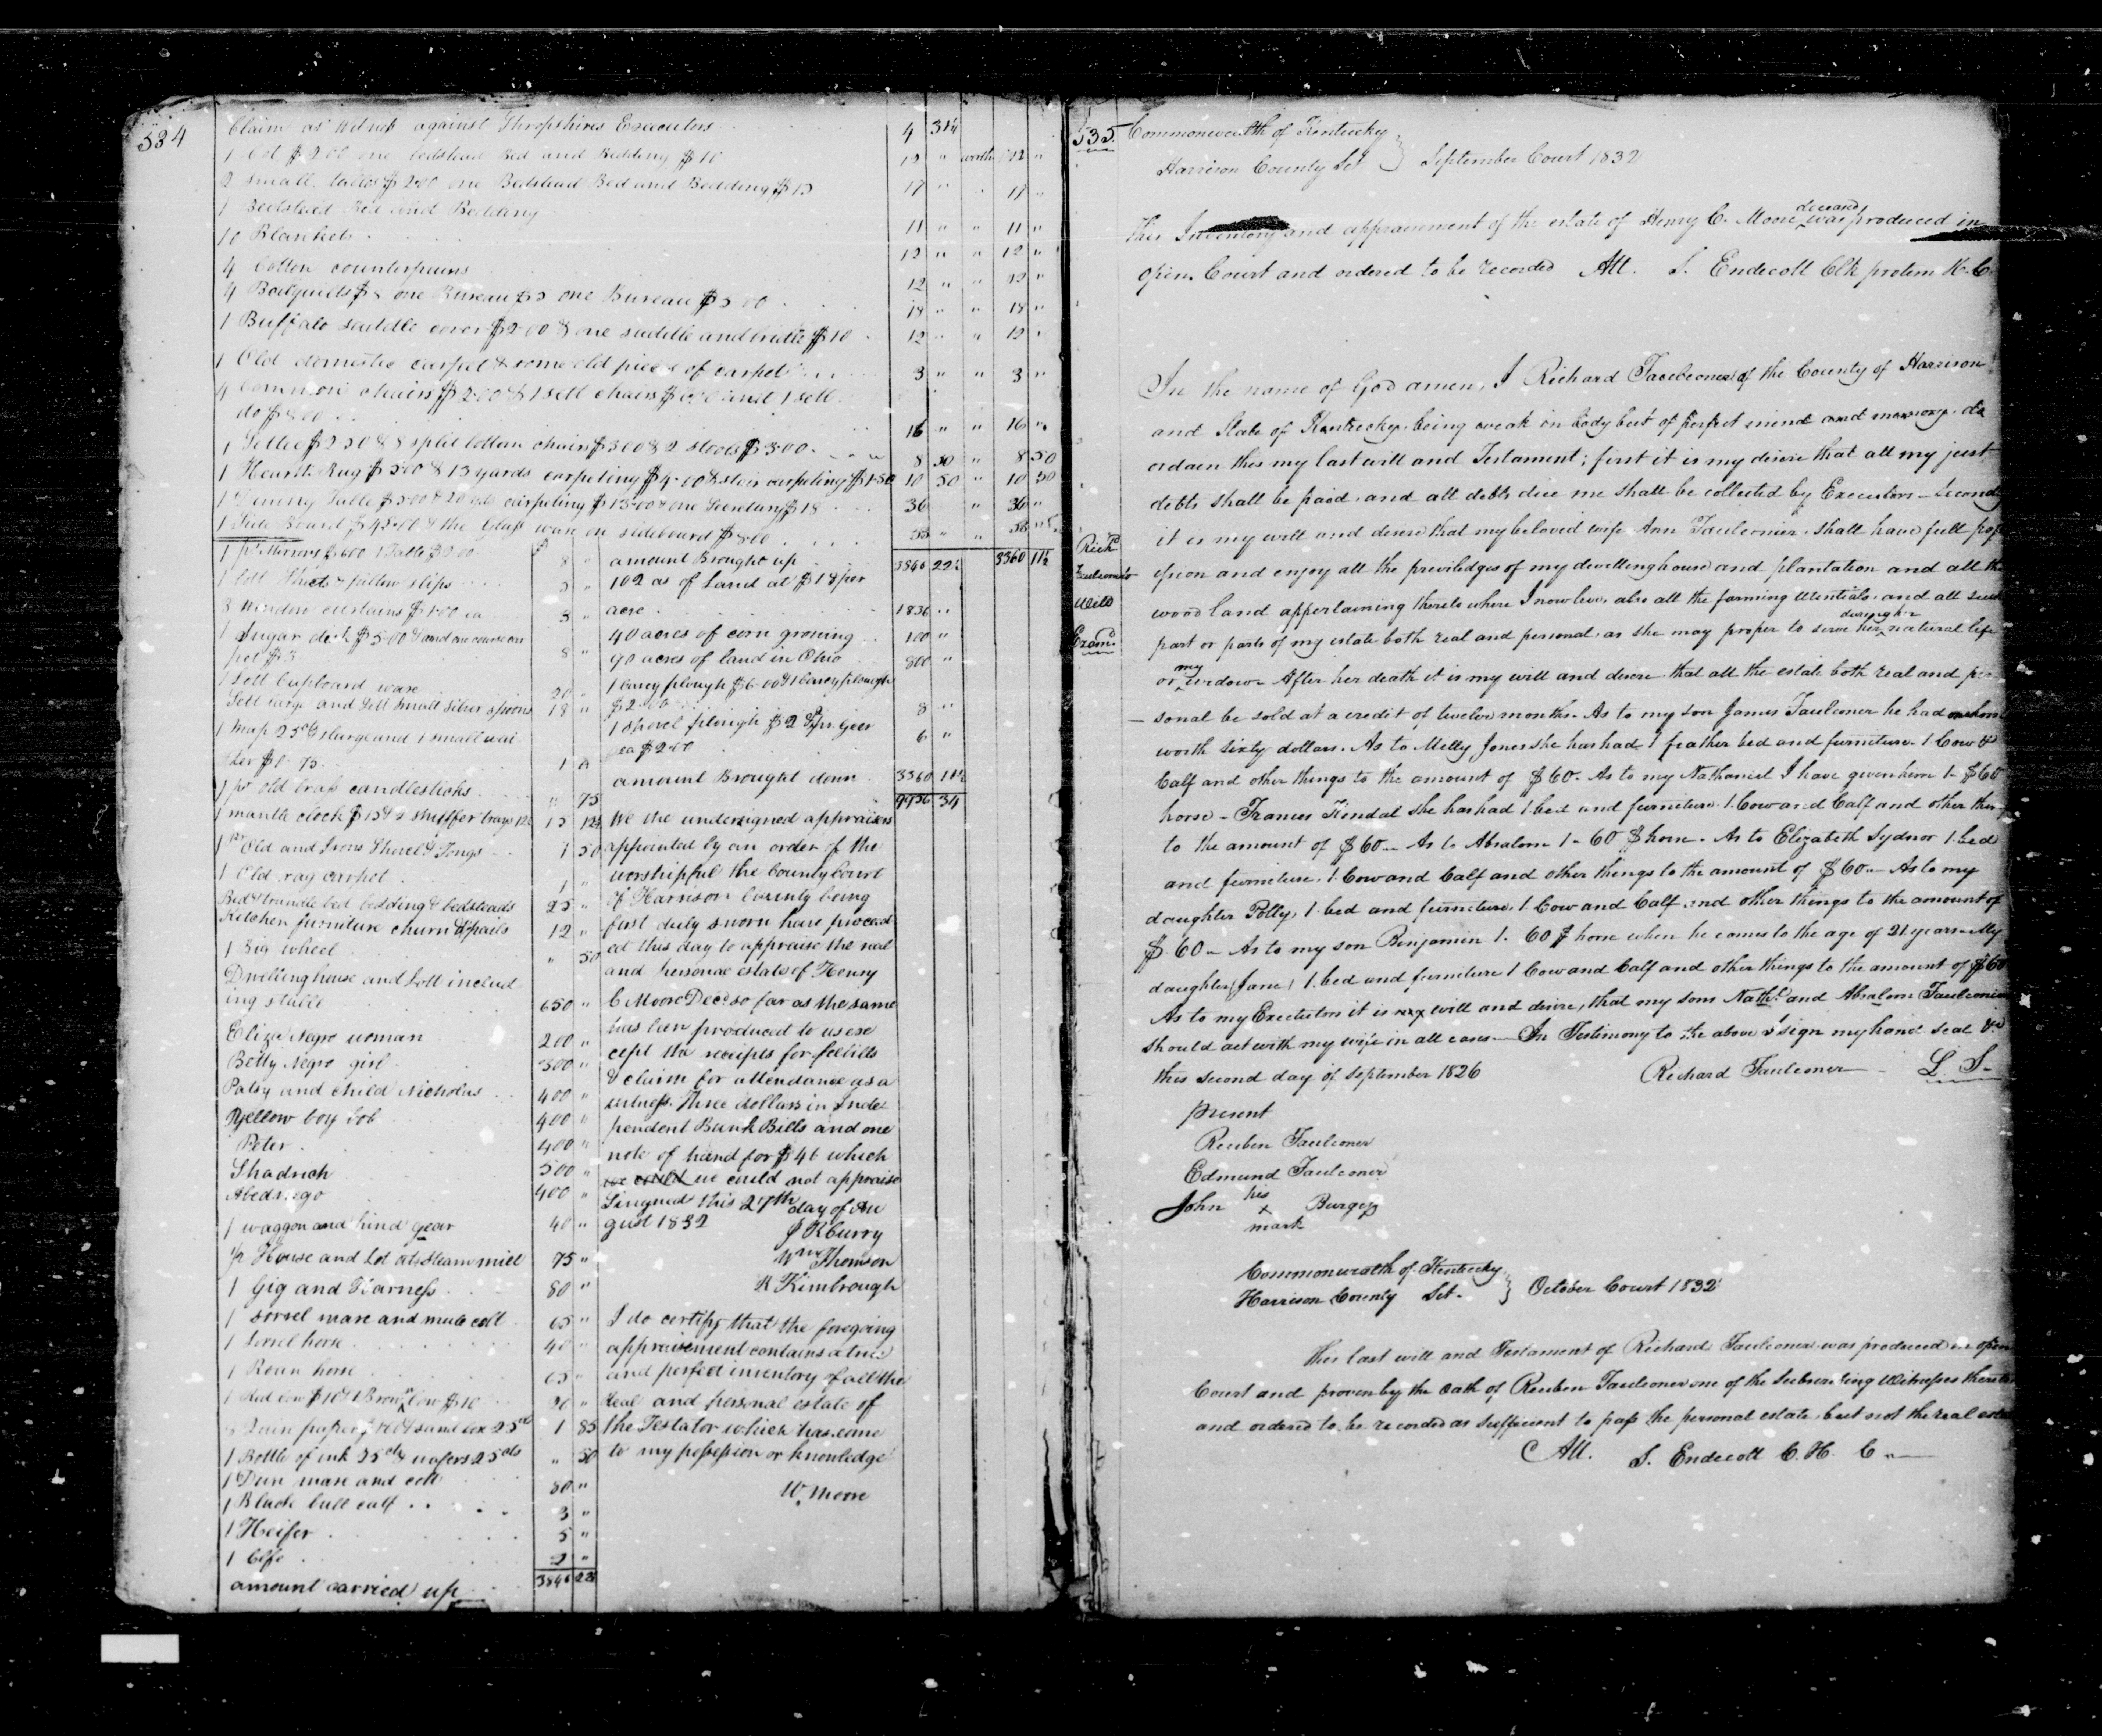 534
Claim as Witness against Shropshires Executors 4 31¼
1 Cot $2.00 one bedstead Bed and Bedding $10 12 " worth 12 "
2 small tables $2.00 one Bedstead Bed and Bedding $15 17 " " 17 "
1 Bedstead Bed and Bedding 11 " " 11 "
10 Blankets 12 " " 12 "
4 Cotton counterpains 12 " " 12 "
4 Bedquilts $8 one Bureau $5 one Bureau $5 00 18 " " 18 "
1 Buffalo saddle cover $2.00 & one saddle and bridle $10 12 " " 12 "
1 Old domestic carpet & some old pieces of carpet 3 " " 3 "
4 Common chairs $2.00 & 1 sett chairs and 1 sett
do $8.00 16 " " 16 "
1 Settee $2 50 & 8 split bottom chairs $3 00 & 2 stools $3.00 8 50 " 8 50
1 Hearth Rug $5.00 & 13 yards carpeting $4.00 & stair carpeting $1.50 10 50 " 10 50
1 Dining Table $5.00 & 20 yds carpeting $13.00 & one Secretary $18 36 36 "
1 Side Board $45.00 & the Glass ware on sideboard $8.00 53 " " 53 "
1 pr Mirrors $6.00 1 Table $2.00 8 "
1 sett Sheets & pillow slips 5 "
3 Window curtains $1.00 ea 3 "
1 Sugar desk $5.00 & and one
pot $3 8 "
1 Sett Cupboard ware 20 "
Sett large and Sett small silver spoons 18 "
1 Map 25cts 1 large and 1 small wai
ter $0.75 1 "
1 pr old brass candlesticks " 75
1 mantle clock $15 & 2 snuffer trays 12½ 15 12½
1 pr Old And Irons Shovel & Tongs 1 50
1 Old rag carpet 1 "
Bed & trundle bed bedding & bedsteads 25 "
Kitchen furniture churn & pails 12 "
1 Big wheel " 50
Dwelling house and Lott includ
ing stable 650 "
Eliza Negro woman 200 "
Betty Negro girl 300 "
Patsy and child Nicholas 400 "
Yellow boy Bob 400 "
Peter 400 "
Shadrich 500 "
Abednego 400 "
1 waggon and hind gear 40 "
½ House and Lot at Steam mill 75 "
1 Gig and Harness 80 "
1 sorrel mare and mule colt 65 "
1 Sorrel horse 40 "
1 Roan horse 65 "
1 Red cow $10 & 1 Brown cow $10 20 "
Quire paper & sand box 25cts 1 85
1 Bottle of ink 25cts & wafers 25cts " 50
1 Dun mare and colt 80 "
1 Black bull calf 3 "
1 Heifer 5 "
1 Calfe 2 "
amount carried up 3846 22½
amount Brought up 3846 22½ 3360 11½
102 as of Land at $18 per
acre 1836 "
40 acres of corn growing 100 "
90 acres of land in Ohio 800 "
1 Carey plough $6.00 & 1 Carey plough
$2.00 8 "
1 Shovel plough $2 & 2 pr Geer
ea $2.00 6 "
amount Brought down 3360 11½
9956 34
We the undersigned appraisers
appointed by an order of the
worshipful the County Court
of Harrison County being
first duly sworn have proceed
ed this day to appraise the real
and personal estate of Henry
C Moore Decd so far as the same
has been produced to us ex
cept the receipts for feebills
& claim for attendance as a
witness. Three dollars in Inde
pendent Bank Bills and one
note of hand for $46 which
we could we could not appraise
Singned this 27th day of Au
gust 1832
J R Curry
Wm Thomson
R Kimbrough
I do certify that the foregoing
appraisement contains a true
and perfect inventory of all the
Real and personal estate of
the Testator which has come
to my possession or knowledge
W. Moore
535
Commonwealth of Kentucky
Harrison County Sct } September Court 1832
This Inventory and appraisement of the estate of Henry C. Moore deceased was produced in
open Court and ordered to be recorded Att. S. Endecott Clk protem H.C.
Richd
Faulconer
Will
Examd
In the name of God amen, I Richard Faulconer of the County of Harrison
and State of Kentucky, being weak in body but of perfect mind and memory, do
ordain this my last will and Testament; first it is my desire that all my just
debts shall be paid, and all debts due me shall be collected by Executors – Secondly
it is my will and desire that my beloved wife Ann Faulconer, shall have full pos
session and enjoy all the priviledges of my dwelling house and plantation and all the
wood land appertaining thereto where I now live, also all the farming utentials, and all such
part or parts of my estate both real and personal, as she may proper to serve her during her natural life
or my widow – After her death it is my will and desire that all the estate both real and per
– sonal be sold at a credit of twelve months. As to my son James Faulconer he had a horse
worth sixty dollars. As to Milly Jones she has had 1 feather bed and furniture – 1 Cow &
Calf and other things to the amount of $60 – As to my Nathaniel I have given him 1 – $60
horse – Frances Kendal she has had 1. bed and furniture 1. Cow and Calf and other things
to the amount of $60 – As to Absalom 1 – 60 $ horse. As to Elizabeth Sydnor 1. bed
and furniture, 1. Cow and Calf and other things to the amount of $60 – As to my
daughter Polly, 1. bed and furniture, 1. Cow and Calf and other things to the amount of
$60 – As to my son Benjamin 1. 60 $ horse when he comes to the age of 21 years – My
daughter Jane, 1. bed and furniture 1 Cow and Calf and other things to the amount of $60
As to my Executors it is my will and desire, that my sons Nathl. and Absalom Faulconer
should act with my wife in all cases – In Testimony to the above I sign my hand seal &c
this second day of September 1826 Richard Faulconer L. S.
present
Reuben Faulconer
Edmund Faulconer
John his x mark Burgess
Commonwealth of Kentucky
Harrison County Sct. } October Court 1832
This last will and Testament of Richard Faulconer was produced in open
Court and proven by the oath of Reuben Faulconer one of the Subscribing Witnesses thereto
and ordered to be recorded as sufficient to pass the personal estate, but not the real estate
Att. S. Endecott C. H. C.